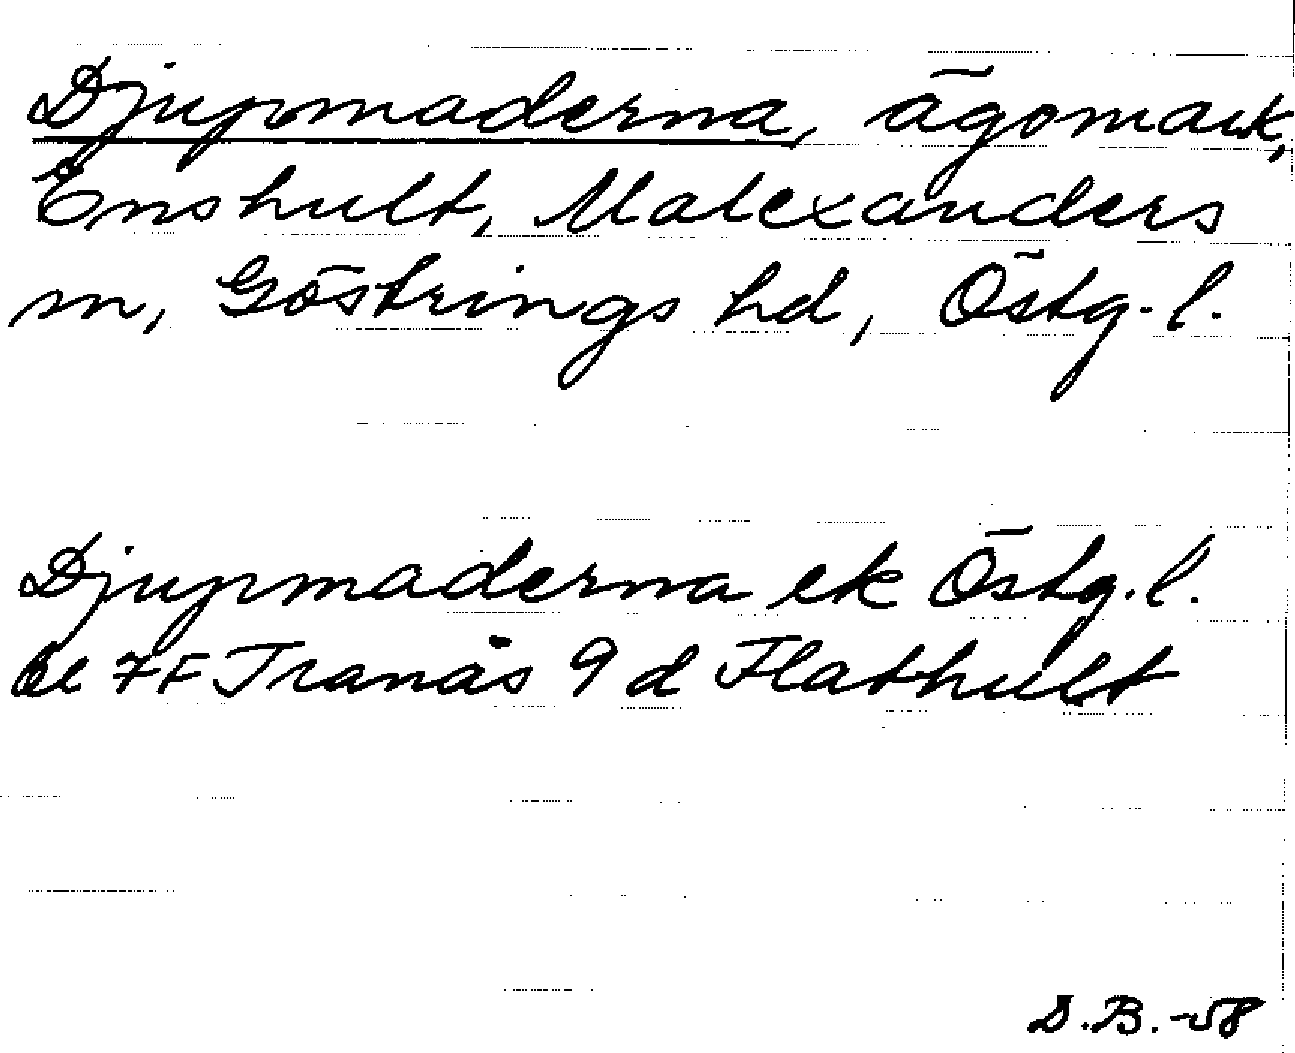 Djupmaderna, ägomark,
Enshult, Malexanders
sn, Göstrings hd, Östg. l.
Djupmaderna ek Östg. l.
bl 7F Tranås 9 d Flathult
D.B.-58